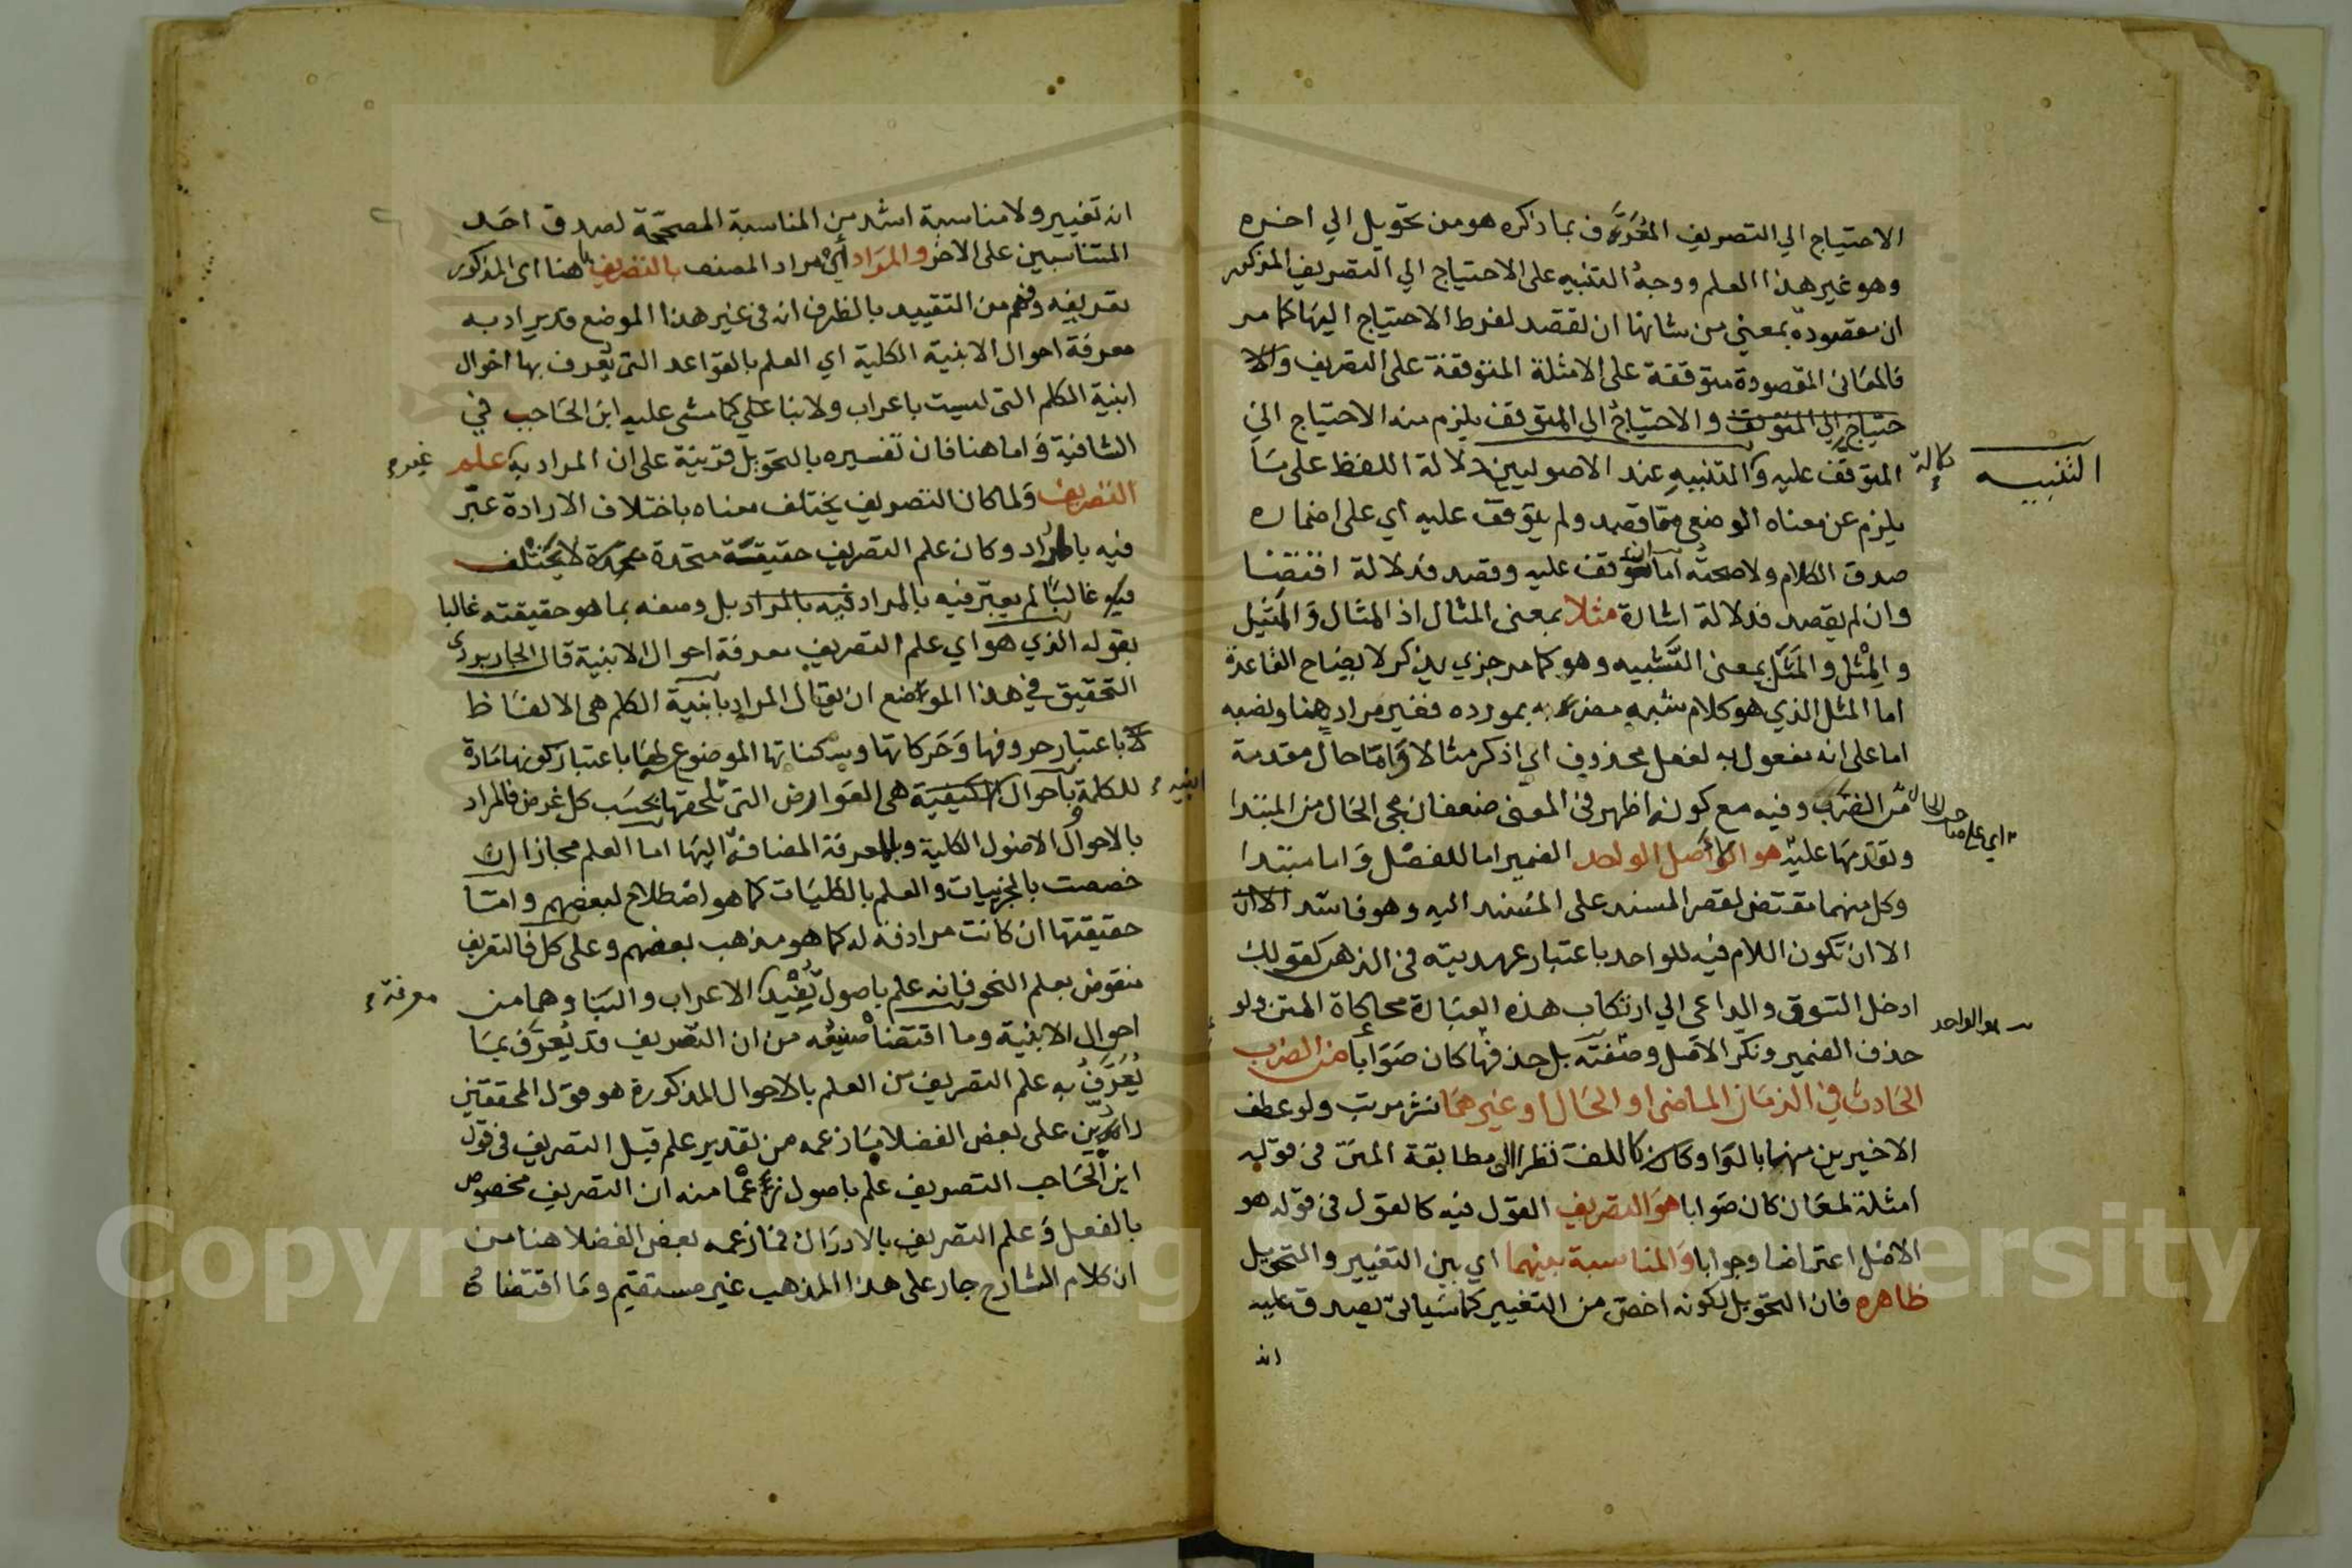 الاحتياج الي التصريف المعرف بما ذكره هو من تحويل الي اخره
وهو غير هذا العلم ووجه التنبيه على الاحتياج الي التصريف المذكور
ان مقصودة بمعني من شانها ان تقصد لفرط الاحتياج اليها كما مر
فالمعاني المقصودة متوقفة على الامثلة المتوقفة على التصريف والا
حتياج الي المتوقف والاحتياج الي المتوقف يلزم منه الاحتياج الي
المتوقف عليه والتنبيه عند الاصوليين دلالة اللفظ على ما
يلزم عن معناه الوضعي مما قصد ولم يتوقف عليه اي على اضماره
صدق الكلام ولا صحته اما ان توقف عليه وقصد فدلالة اقتضا
وان لم يقصد فدلالة اشارة مثلا بمعنى المثال اذ المثال والمثيل
والمثل والمثل بمعنى الشبيه وهو كما مر جزي يذكر لايضاح القاعدة
اما المثل الذي هو كلام شبه مضربه بمورده فغير مراد هنا ونصبه
اما على انه مفعول به لفعل محذوف اي اذكر مثالا واما حال مقدمة
من الضرب وفيه مع كونه اظهر في المعنى ضعفان مجي الحال من المبتدا
وتقدمها عليه هو الاصل الواحد الضمير اما للفصل واما مبتدا
وكل منهما مقتض لقصر المسند على المسند اليه وهو فاسد الا ان
الا ان تكون اللام فيه للواحد باعتبار عهديته في الذهن كقولك
ادخل السوق والداعي الي ارتكاب هذه العبارة محاكاة المتن ولو
حذف الضمير ونكر الاصل وصفته بل حذفها كان صوابا من الضرب
الحادث في الزمان الماضي او الحال او غيرهما نشر مرتب ولو عطف
الاخيرين منهما بالواو وكان كاللف نظرا الى مطابقة المتن في قوله
امثلة لمعان كان صوابا هو التصريف القول فيه كالقول في قوله هو
الاصل اعتراضا وجوابا والمناسبة بينهما اي بين التغيير والتحويل
ظاهره فان التحويل لكونه اخص من التغيير كما سياتي يصدق عليه
انه
التنبيه
دلالة
هو الواحد
انه تغيير ولا مناسبة اشد من المناسبة المصححة لصدق احد
المتناسبين على الاخر والمراد اي مراد المصنف بالتصريف هاهنا اي المذكور
تعريفه وفهم من التقييد بالظرف ان في غير هذا الموضع قد يراد به
معرفة احوال الابنية الكلية اي العلم بالقواعد التي يعرف بها احوال
ابنية الكلم التي ليست باعراب ولا بنا على كما مشى عليه ابن الحاجب في
الشافية واما هنا فان تفسيره بالتحويل قرينة على ان المراد به علم
التصريف ولما كان التصريف يختلف معناه باختلاف الارادة عبر
فيه بالمراد وكان علم التصريف حقيقة متحدة لا يختلف
فيه غالبا لم يعبر فيه بالمراد فيه بالمراد بل وصفه بما هو حقيقته غالبا
بقوله الذي هو اي علم التصريف معرفة احوال الابنية قال الجاربردي
التحقيق في هذا الموضع ان يقال المراد بابنية الكلم هي الالفاظ
لا باعتبار حروفها وحركاتها وسكناتها الموضوع لها باعتبار كونها مادة
للكلمة وباحوال الكيفية هي العوارض التي تلحقها بحسب كل غرض فالمراد
بالاحوال الاصول الكلية وبالمعرفة المضافة اليها اما العلم مجازا ان
خصصت بالجزييات والعلم بالكليات كما هو اصطلاح لبعضهم واما
حقيقتها ان كانت مرادفة له كما هو مذهب بعضهم وعلى كل فالتعريف
منقوض بعلم النحو فانه علم باصول تفيد الاعراب والبنا وهما من
احوال الابنية وما اقتضا صنيعه من ان التصريف قد يعرف بما
يعرف به علم التصريف من العلم بالاحوال المذكورة هو قول المحققين
رادين على بعض الفضلا ما زعمه من تقدير علم قبل التصريف في قول
ابن الحاجب التصريف علم باصول زعما منه ان التصريف مخصوص
بالفعل وعلم التصريف بالادراك فما زعمه بعض الفضلا هنا من
ان كلام الشارح جار على هذا المذهب غير مستقيم وما اقتضاه
غيره
ابنيه
معرفة
Copyright © King Saud University